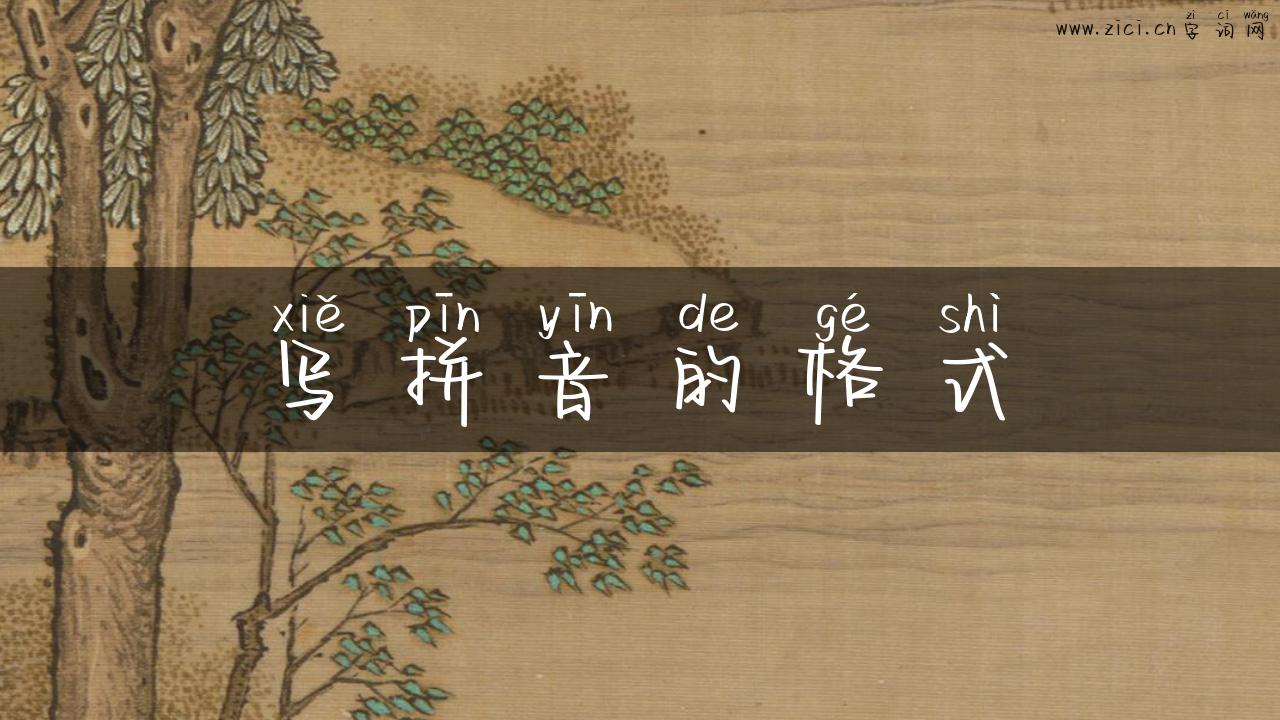 zì cí wǎng
www.zici.cn 字词网
xiě pīn yīn de gé shì
写拼音的格式